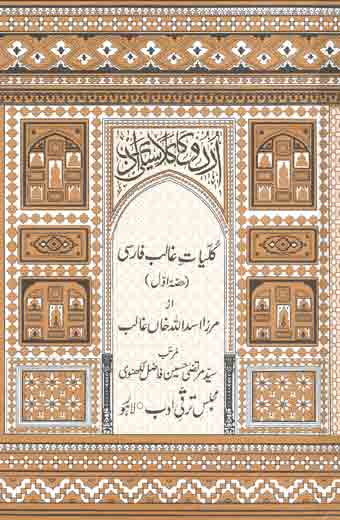 اردو کا کلاسیکی ادب
کُلّیاتِ غالب فارسی
(حصّۂ اوّل)
از
مرزا اسد اللہ خاں غالب
مرتبہ
سیّد مرتضیٰ حسین فاضل لکھنوی
مجلس ترقیِ ادب ○ لاہور